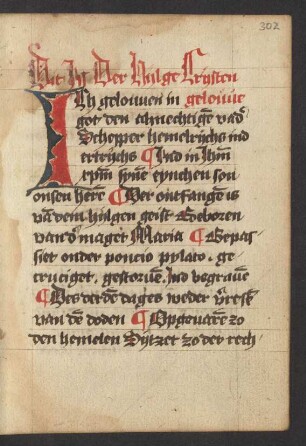 302
Dit Is Der hilge Cristen
gelouue
Ich gelouuen in
got den almechtigē vadᵉ
Schepper hemelrijchs ind
ertrijchs ¶ Ind in ihm̄
xpm̄ synē eynchen son
onsen herē ¶ Der ontfangē is
vā dem hilgen geist Geboren
van dᵉ maget Maria ¶ Gepas
siet onder poncio pylato · ge
cruciget, gestoruē, Ind begrauē
¶ Des derdē dages weder vᵉresē
van dē doden ¶ Opgeuarē zo
den hemelen Sijtzet zo der rech